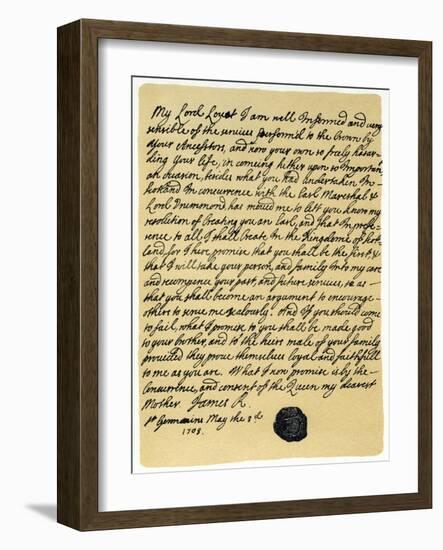 My Lord Lovat I am well Informed and very
sensible of the services performed to the Crown by
your Ancestors, and now your own so freely hasar-
ding your life, in coming hither upon so Important
an occasion, besides what you had Undertaken, In
Scotland In concurrence with the Earl Mareshal &
Lord Drummond has moved me to lett you know my
resolution of Creating you an Earl, and that In prefe-
rence to all I shall Create In the Kingdome of Scot-
land, for I here promise that you shall be the first &
that I will take your person, and family Into my care
and recompence your past, and future services, so as
that you shall become an argument to encourage
others to serve me zealously. And If you should come
to fail, what I promise to you shall be made good
to your brother, and to the heirs male of your family
provided they prove themselves loyal and faithfull
to me as you are. What I now promise is by the
Concurrence and consent of the Queen my dearest
Mother. James R.
St Germains May the 3d
1703.